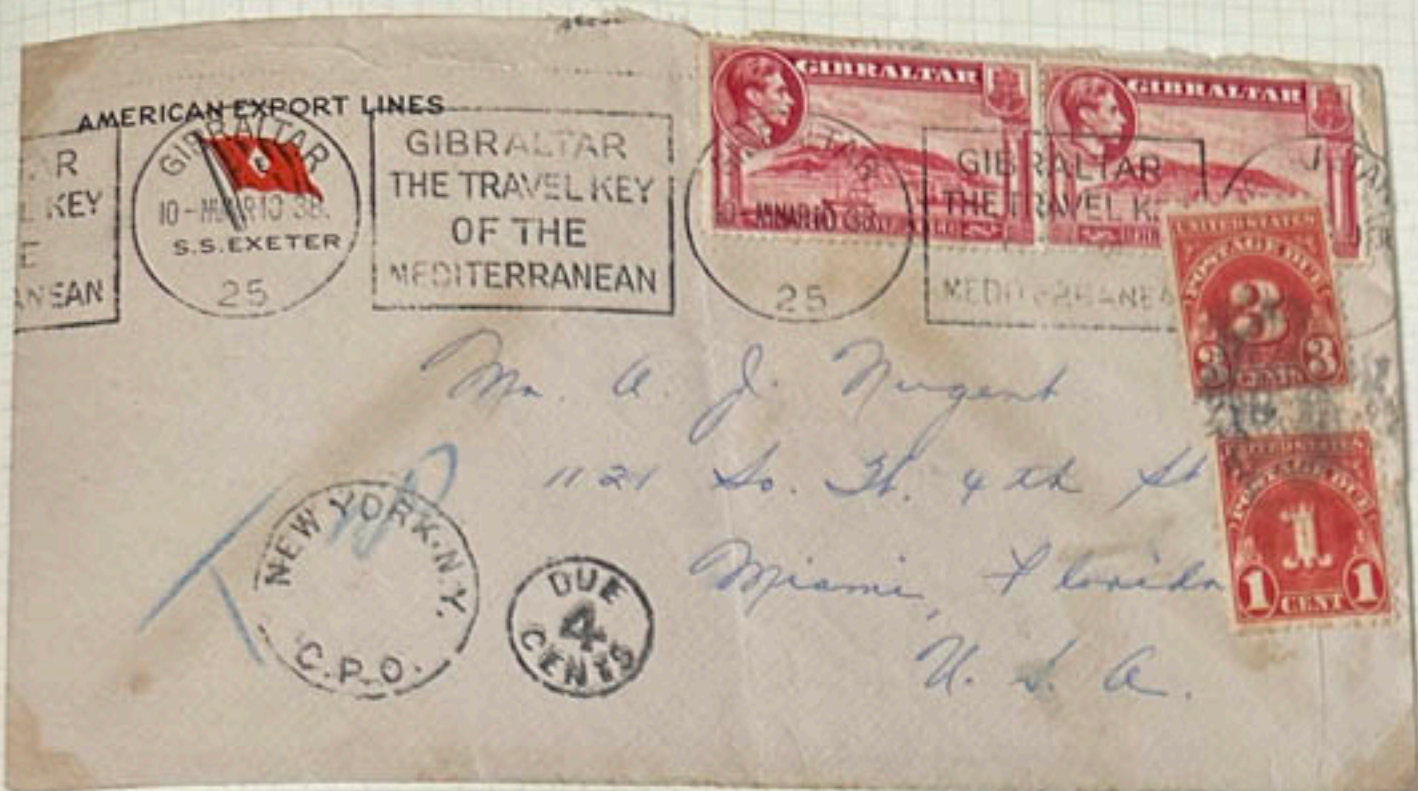 AMERICAN EXPORT LINES
GIBRALTAR
10-MAR 10 38.
S.S. EXETER
25
AR
L KEY
E
ANEAN
GIBRALTAR
THE TRAVEL KEY
OF THE
MEDITERRANEAN
GIBRALTAR
GIBRALTAR
25
GIBRALTAR
THE TRAVEL K
MEDITERRANEA
UNITED STATES
POSTAGE DUE
3
3 CENTS 3
UNITED STATES
POSTAGE DUE
1
1 CENT 1
Mr. A. J. Nugent
1121 So. W. 4th St
Miami, Florida
U. S. A.
T
NEW YORK, N.Y.
C.P.O.
DUE
4
CENTS